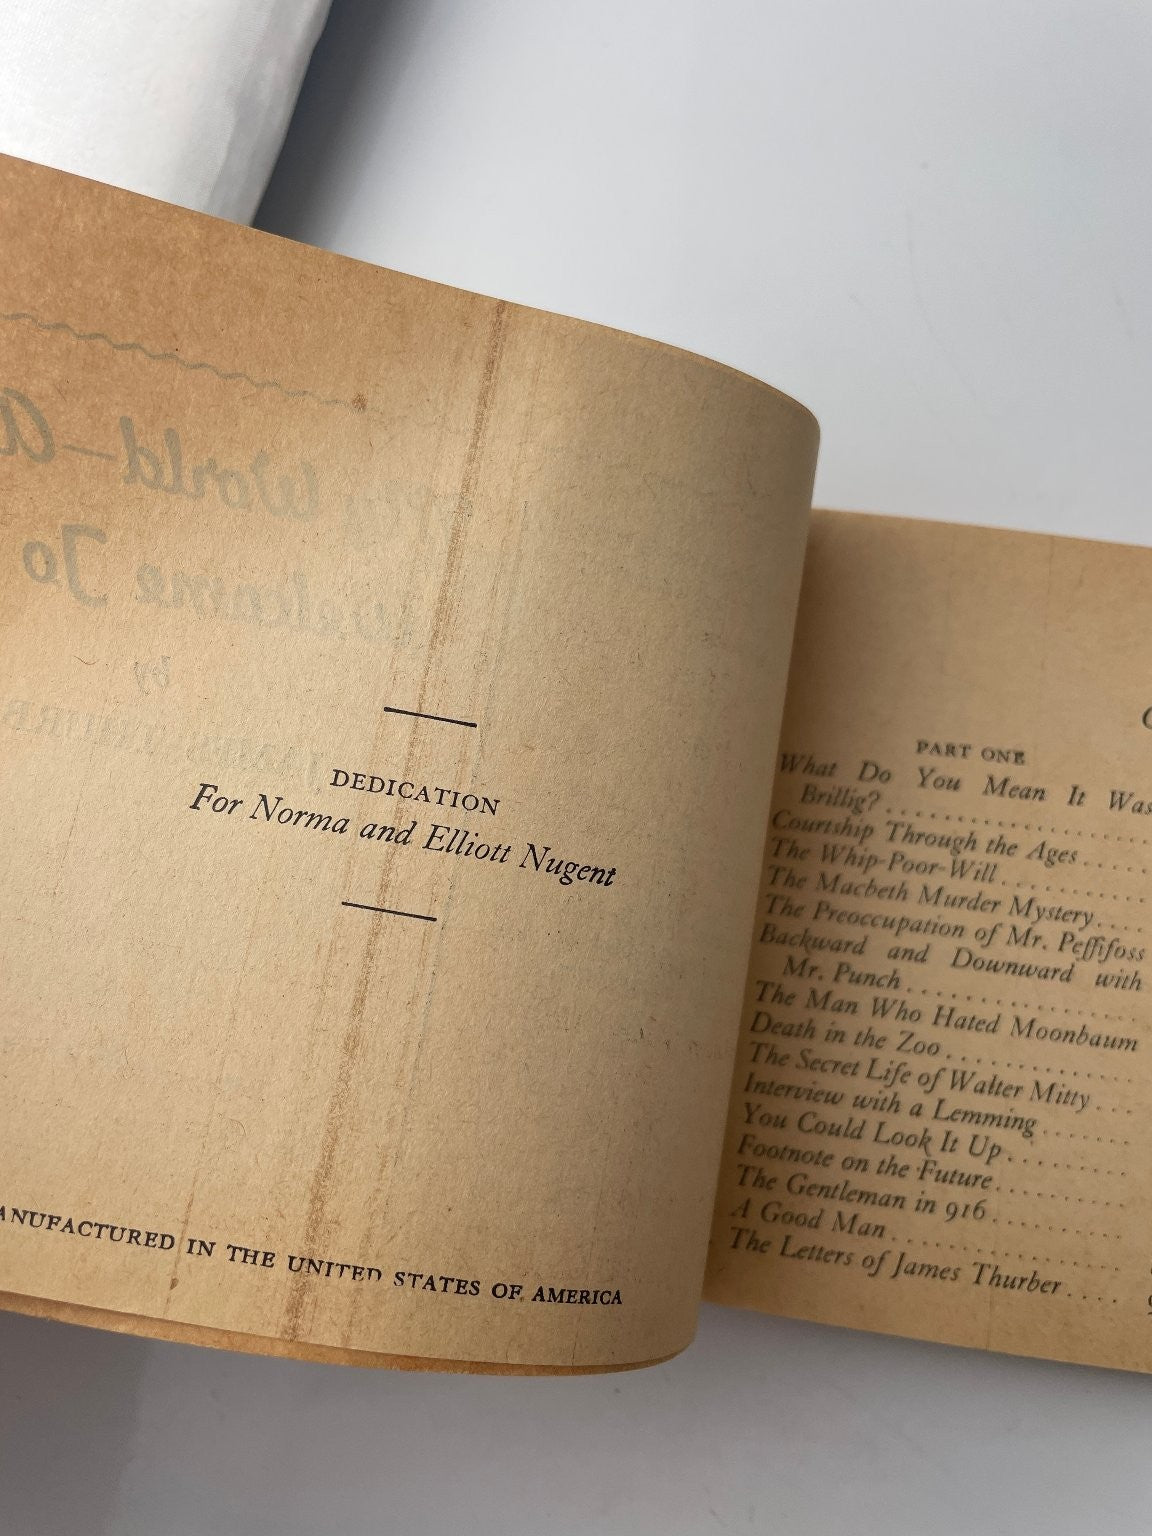 DEDICATION
For Norma and Elliott Nugent
MANUFACTURED IN THE UNITED STATES OF AMERICA
PART ONE
What Do You Mean It Was
Brillig? ....................
Courtship Through the Ages .....
The Whip-Poor-Will ...........
The Macbeth Murder Mystery ....
The Preoccupation of Mr. Peffifoss
Backward and Downward with
Mr. Punch ..................
The Man Who Hated Moonbaum
Death in the Zoo ..............
The Secret Life of Walter Mitty ...
Interview with a Lemming .......
You Could Look It Up .........
Footnote on the Future ..........
The Gentleman in 916 ..........
A Good Man .................
The Letters of James Thurber ....